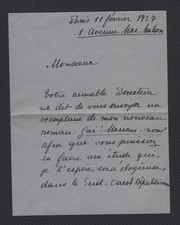 Paris 11 février 1927
1 Avenue Mac Mahon
Monsieur
Votre aimable Directeur
me dit de vous envoyer un
exemplaire de mon nouveau
roman Gai! Marions-nous!
afin que vous puissiez
en faire une étude qui,
je l'espère sera élogieuse,
dans le Sud-Ouest républicain